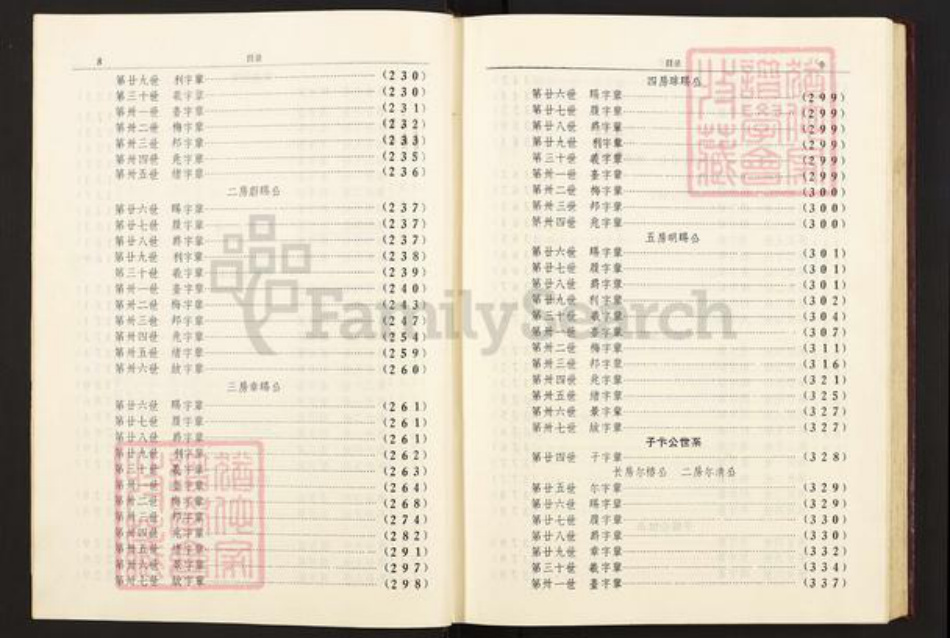 8 目录
第廿九世 利字辈 (230)
第三十世 羲字辈 (230)
第卅一世 臺字辈 (231)
第卅二世 梅字辈 (232)
第卅三世 邦字辈 (233)
第卅四世 兆字辈 (235)
第卅五世 绪字辈 (236)
二房蔚赐公
第廿六世 赐字辈 (237)
第廿七世 履字辈 (237)
第廿八世 爵字辈 (237)
第廿九世 利字辈 (238)
第三十世 羲字辈 (239)
第卅一世 臺字辈 (240)
第卅二世 梅字辈 (243)
第卅三世 邦字辈 (247)
第卅四世 兆字辈 (254)
第卅五世 绪字辈 (259)
第卅六世 纹字辈 (260)
三房章赐公
第廿六世 赐字辈 (261)
第廿七世 履字辈 (261)
第廿八世 爵字辈 (261)
第廿九世 利字辈 (262)
第三十世 羲字辈 (263)
第卅一世 臺字辈 (264)
第卅二世 梅字辈 (268)
第卅三世 邦字辈 (274)
第卅四世 兆字辈 (282)
第卅五世 绪字辈 (291)
第卅六世 景字辈 (297)
第卅七世 纹字辈 (298)
目录
四房琭赐公
第廿六世 赐字辈 (299)
第廿七世 履字辈 (299)
第廿八世 爵字辈 (299)
第廿九世 利字辈 (299)
第三十世 羲字辈 (299)
第卅一世 臺字辈 (299)
第卅二世 梅字辈 (300)
第卅三世 邦字辈 (300)
第卅四世 兆字辈 (300)
五房明赐公
第廿六世 赐字辈 (301)
第廿七世 履字辈 (301)
第廿八世 爵字辈 (301)
第廿九世 利字辈 (302)
第三十世 羲字辈 (304)
第卅一世 臺字辈 (307)
第卅二世 梅字辈 (311)
第卅三世 邦字辈 (316)
第卅四世 兆字辈 (321)
第卅五世 绪字辈 (325)
第卅六世 景字辈 (327)
第卅七世 纹字辈 (327)
子卞公世系
第廿四世 子字辈 (328)
长房尔楷公 二房尔清公
第廿五世 尔字辈 (329)
第廿六世 赐字辈 (329)
第廿七世 履字辈 (330)
第廿八世 爵字辈 (330)
第廿九世 章字辈 (332)
第三十世 羲字辈 (334)
第卅一世 臺字辈 (337)
FamilySearch